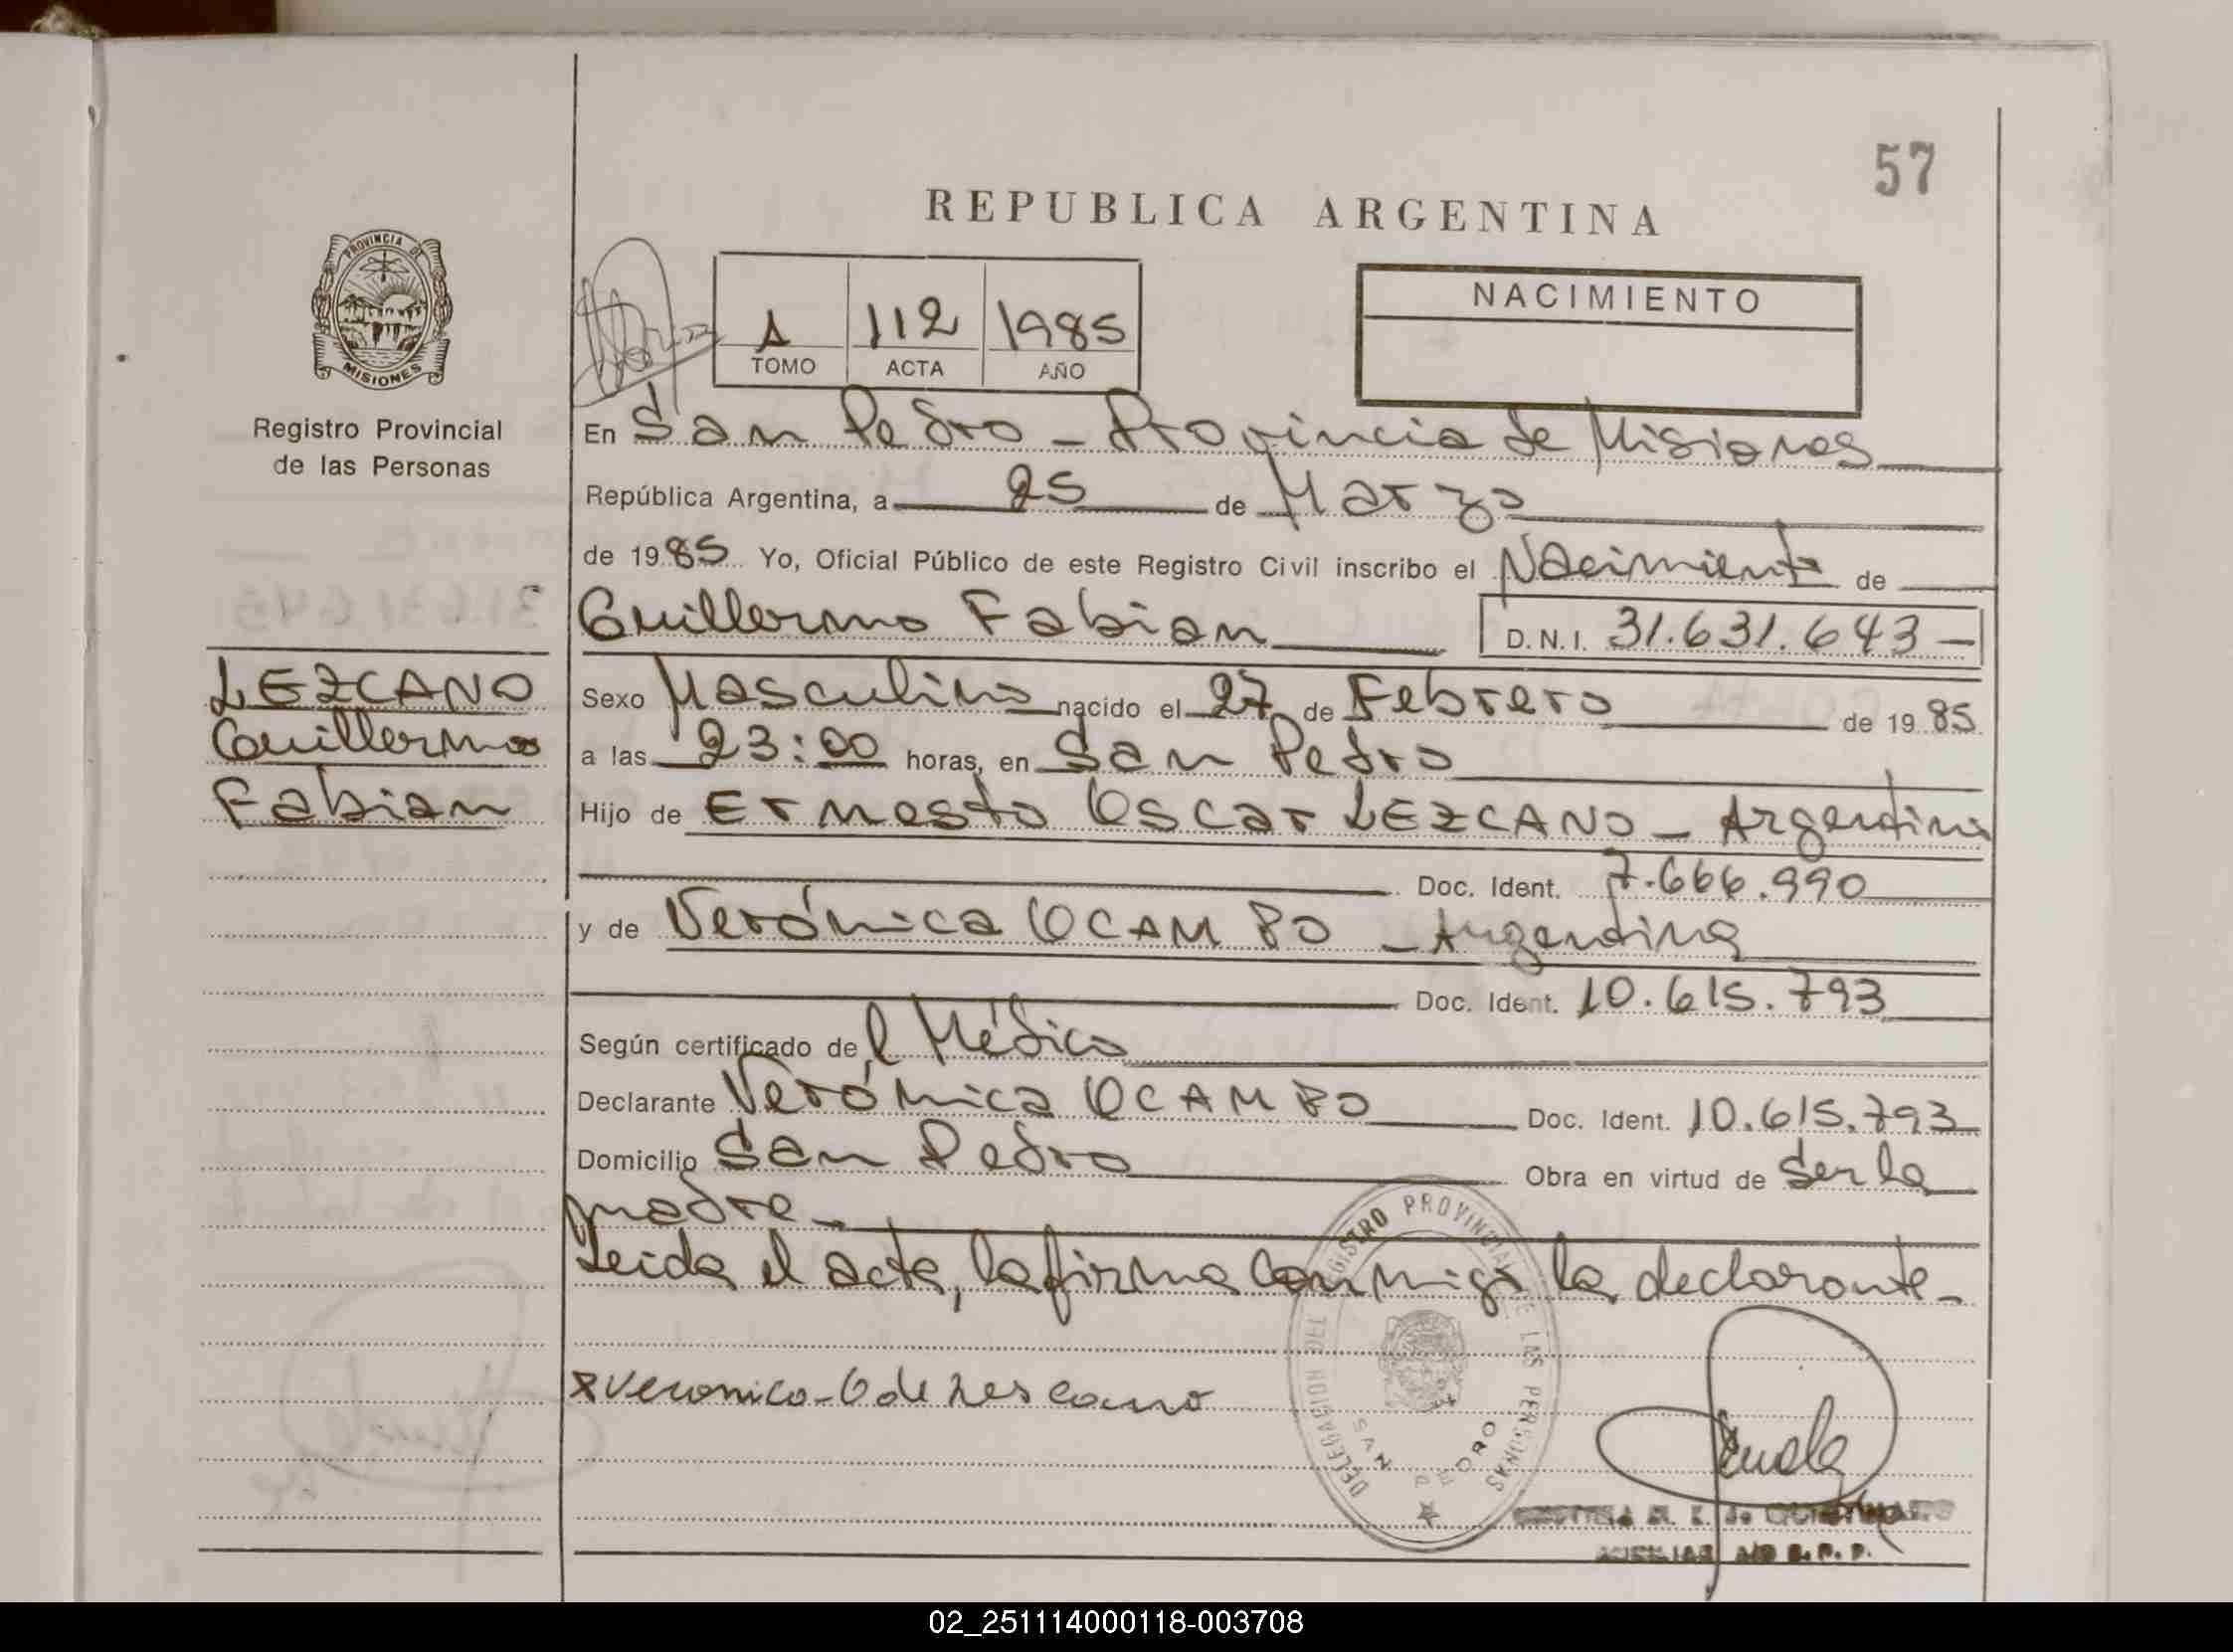 57
REPUBLICA ARGENTINA
PROVINCIA DE
MISIONES
Registro Provincial
de las Personas
A 112 1985
TOMO ACTA AÑO
NACIMIENTO
En San Pedro - Provincia de Misiones
República Argentina, a 25 de Marzo
de 1985 Yo, Oficial Público de este Registro Civil inscribo el Nacimiento de
Guillermo Fabian D.N.I. 31.631.643
LEZCANO
Guillermo
Fabian
Sexo Masculino nacido el 27 de Febrero de 1985
a las 23:00 horas, en San Pedro
Hijo de Ernesto Oscar LEZCANO - Argentino
Doc. Ident. 7.666.990
y de Verónica OCAMPO - Argentina
Doc. Ident. 10.615.793
Según certificado del Médico
Declarante Verónica OCAMPO Doc. Ident. 10.615.793
Domicilio San Pedro Obra en virtud de Ser la
madre.-
Leida el acta, la firma conmigo la declarante-
DELEGACION DEL REGISTRO PROVINCIAL DE LAS PERSONAS
SAN PEDRO
x Veronica - O de Lescano
AUXILIAR R. P. P.
02_251114000118-003708